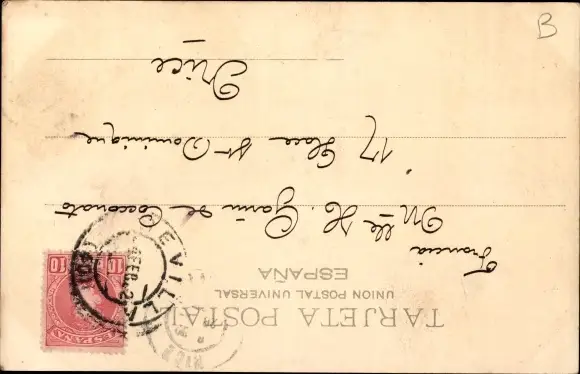 TARJETA POSTAL
UNION POSTAL UNIVERSAL
ESPAÑA
Francia
Mlle H. Garin de Cocconato
17, Place St Dominique
Nice
ESPAÑA
10 10
SEVILLA
FEB
B